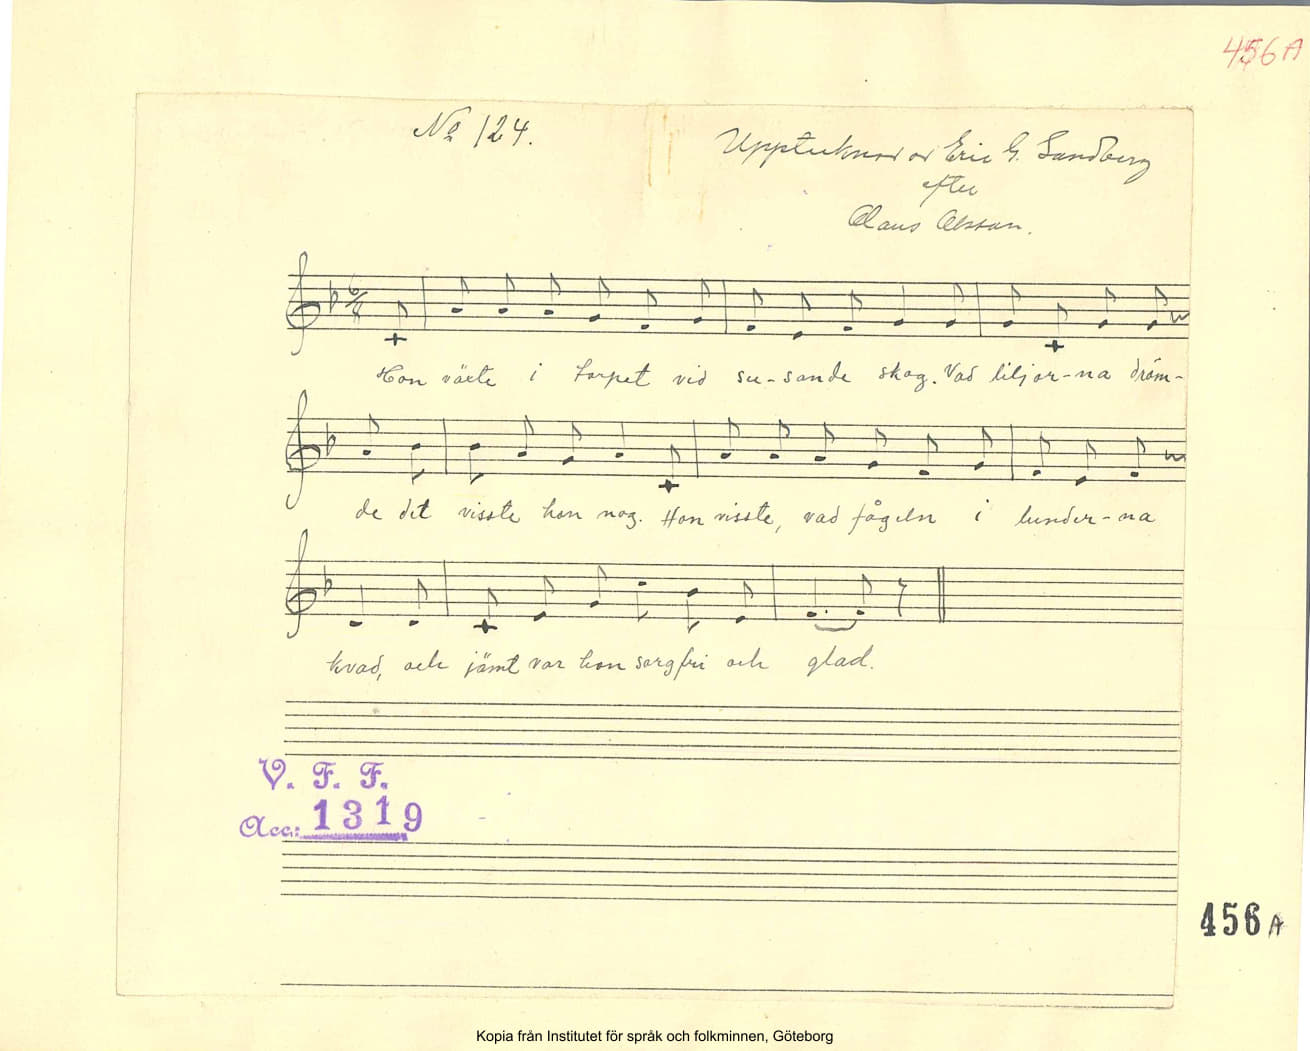 456 A
No 124.
Upptecknad av Eric G. Sandberg
efter
Claus Olsson.
6/8
Hon växte i torpet vid su-sande skog. Vad liljor-na dröm-
de det visste hon nog. Hon visste, vad fågeln i lunder-na
kvad, och jämt var hon sorgfri och glad.
V. F. F.
Acc: 1319
456 A
Kopia från Institutet för språk och folkminnen, Göteborg